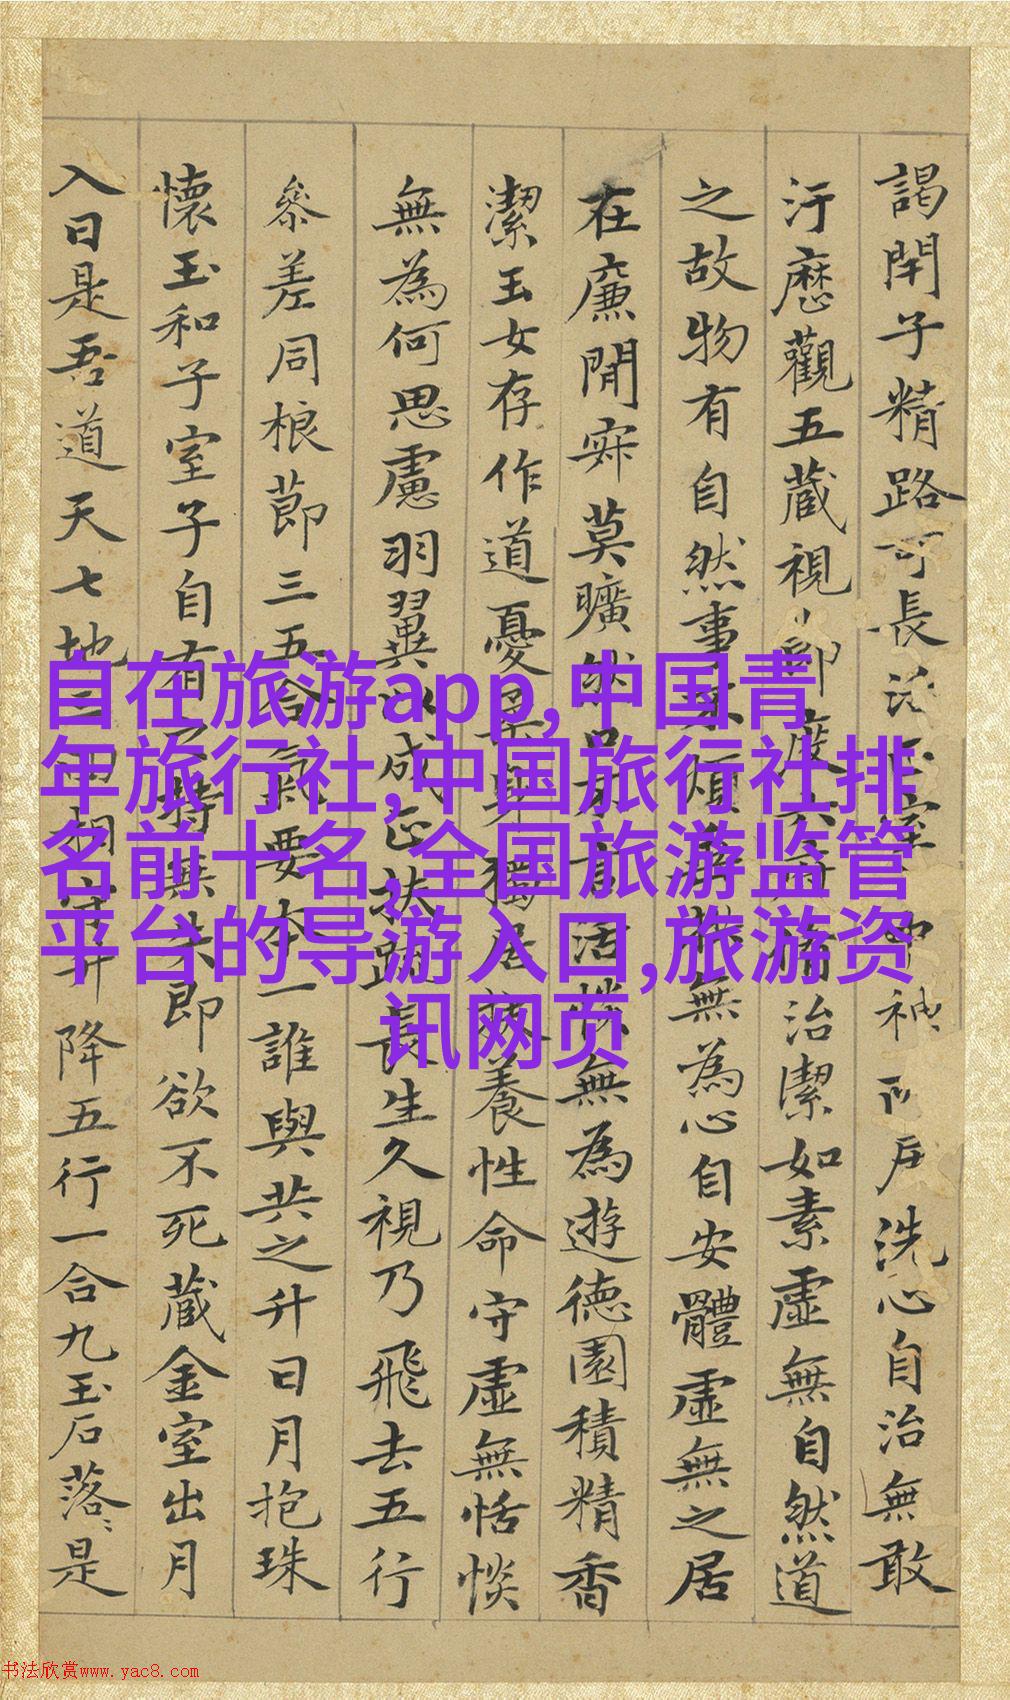 謁閇子精路可長
洗心自治無敢
汙歷觀五藏視
治潔如素虛無自然道
之故物有自然事
無為心自安體虛無之居
在廉閒寂莫曠然
無為遊德園積精香
潔玉女存作道憂
養性命守虛無恬惔
無為何思慮羽翼以成正扶
長生久視乃飛去五行
參差同根節三五合氣要本一誰與共之升日月抱珠
懷玉和子室子自有之持無失即欲不死藏金室出月
入日是吾道天七地三回相守升降五行一合九玉石落〻是
自在旅游app,中国青
年旅行社,中国旅行社排
名前十名,全国旅游监管
平台的导游入口,旅游资
讯网页
书法欣赏www.yac8.com